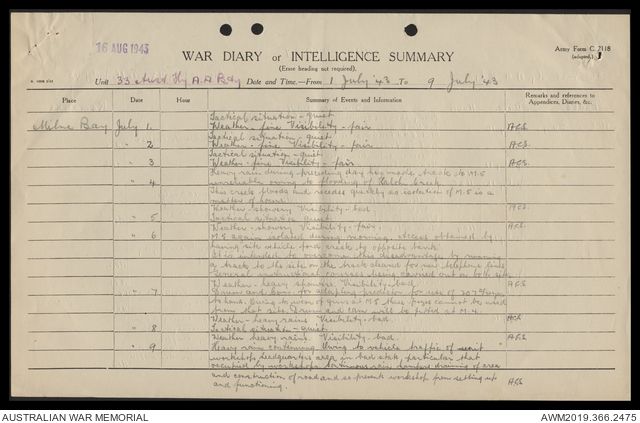 16 AUG 1943
WAR DIARY or INTELLIGENCE SUMMARY
(Erase heading not required).
Army Form C. 2118
(adapted)
Unit 33 Aust Hy A A Bty Date and Time.—From 1 July '43 To 9 July '43
Place Date Hour Summary of Events and Information Remarks and references to Appendices, Diaries, &c.
Tactical situation - quiet
Milne Bay July 1. Weather - fine Visibility - fair ACS.
Tactical situation - quiet.
" 2 Weather - fine Visibility - fair ACS.
Tactical situation - quiet
" 3 Weather - fine Visibility - fair ACS.
Heavy rain during preceding day has made track to M.5
" 4 unreliable owing to flooding of Creek
This creek floods and recedes quickly so isolation of M.5 is a
matter of hours.
Weather - showery Visibility - bad. ACS.
" 5 Tactical situation quiet
Weather - showery Visibility - fair. ACS.
" 6 M.5 again isolated during morning, access obtained by
having site vehicle ford creek to opposite bank.
It is intended to overcome this disadvantage by running
a track to the site on the track cleared for new telephone lines
General instructional courses being carried out on both sites
Weather - heavy showers Visibility - bad. ACS
" 7 Drum and cam for adapting predictor for use of fuze
to hand. Owing to wear of guns at M.5 these fuzes cannot be used
from that site. Drum and cam will be fitted at M.4.
Weather - heavy rains Visibility - bad. ACS
" 8 Tactical situation - quiet
Weather heavy rains. Visibility bad. ACS
" 9 Heavy rain continuing. Owing to vehicle traffic of unit
workshops, headquarters area in bad state, particular that
occupied by workshops. Continuous rain hampers draining of area
and construction of road and so prevents workshop from setting up
and functioning. ACS
AUSTRALIAN WAR MEMORIAL
AWM2019.366.2475